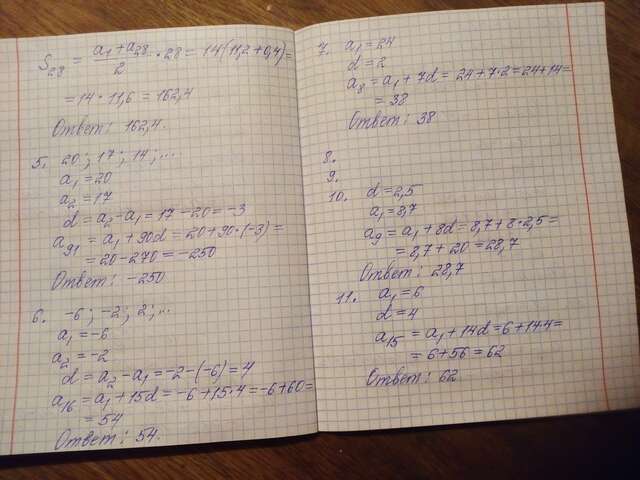 S₂₈ = (a₁ + a₂₈)/2 · 28 = 14(11,2 + 0,4) =
= 14 · 11,6 = 162,4
Ответ: 162,4.
5. 20; 17; 14; ...
a₁ = 20
a₂ = 17
d = a₂ - a₁ = 17 - 20 = -3
a₉₁ = a₁ + 90d = 20 + 90 · (-3) =
= 20 - 270 = -250
Ответ: -250
6. -6; -2; 2; ...
a₁ = -6
a₂ = -2
d = a₂ - a₁ = -2 - (-6) = 4
a₁₆ = a₁ + 15d = -6 + 15 · 4 = -6 + 60 =
= 54
Ответ: 54.
7. a₁ = 24
d = 2
a₈ = a₁ + 7d = 24 + 7 · 2 = 24 + 14 =
= 38
Ответ: 38
8.
9.
10. d = 2,5
a₁ = 8,7
a₉ = a₁ + 8d = 8,7 + 8 · 2,5 =
= 8,7 + 20 = 28,7
Ответ: 28,7
11. a₁ = 6
d = 4
a₁₅ = a₁ + 14d = 6 + 14·4 =
= 6 + 56 = 62
Ответ: 62